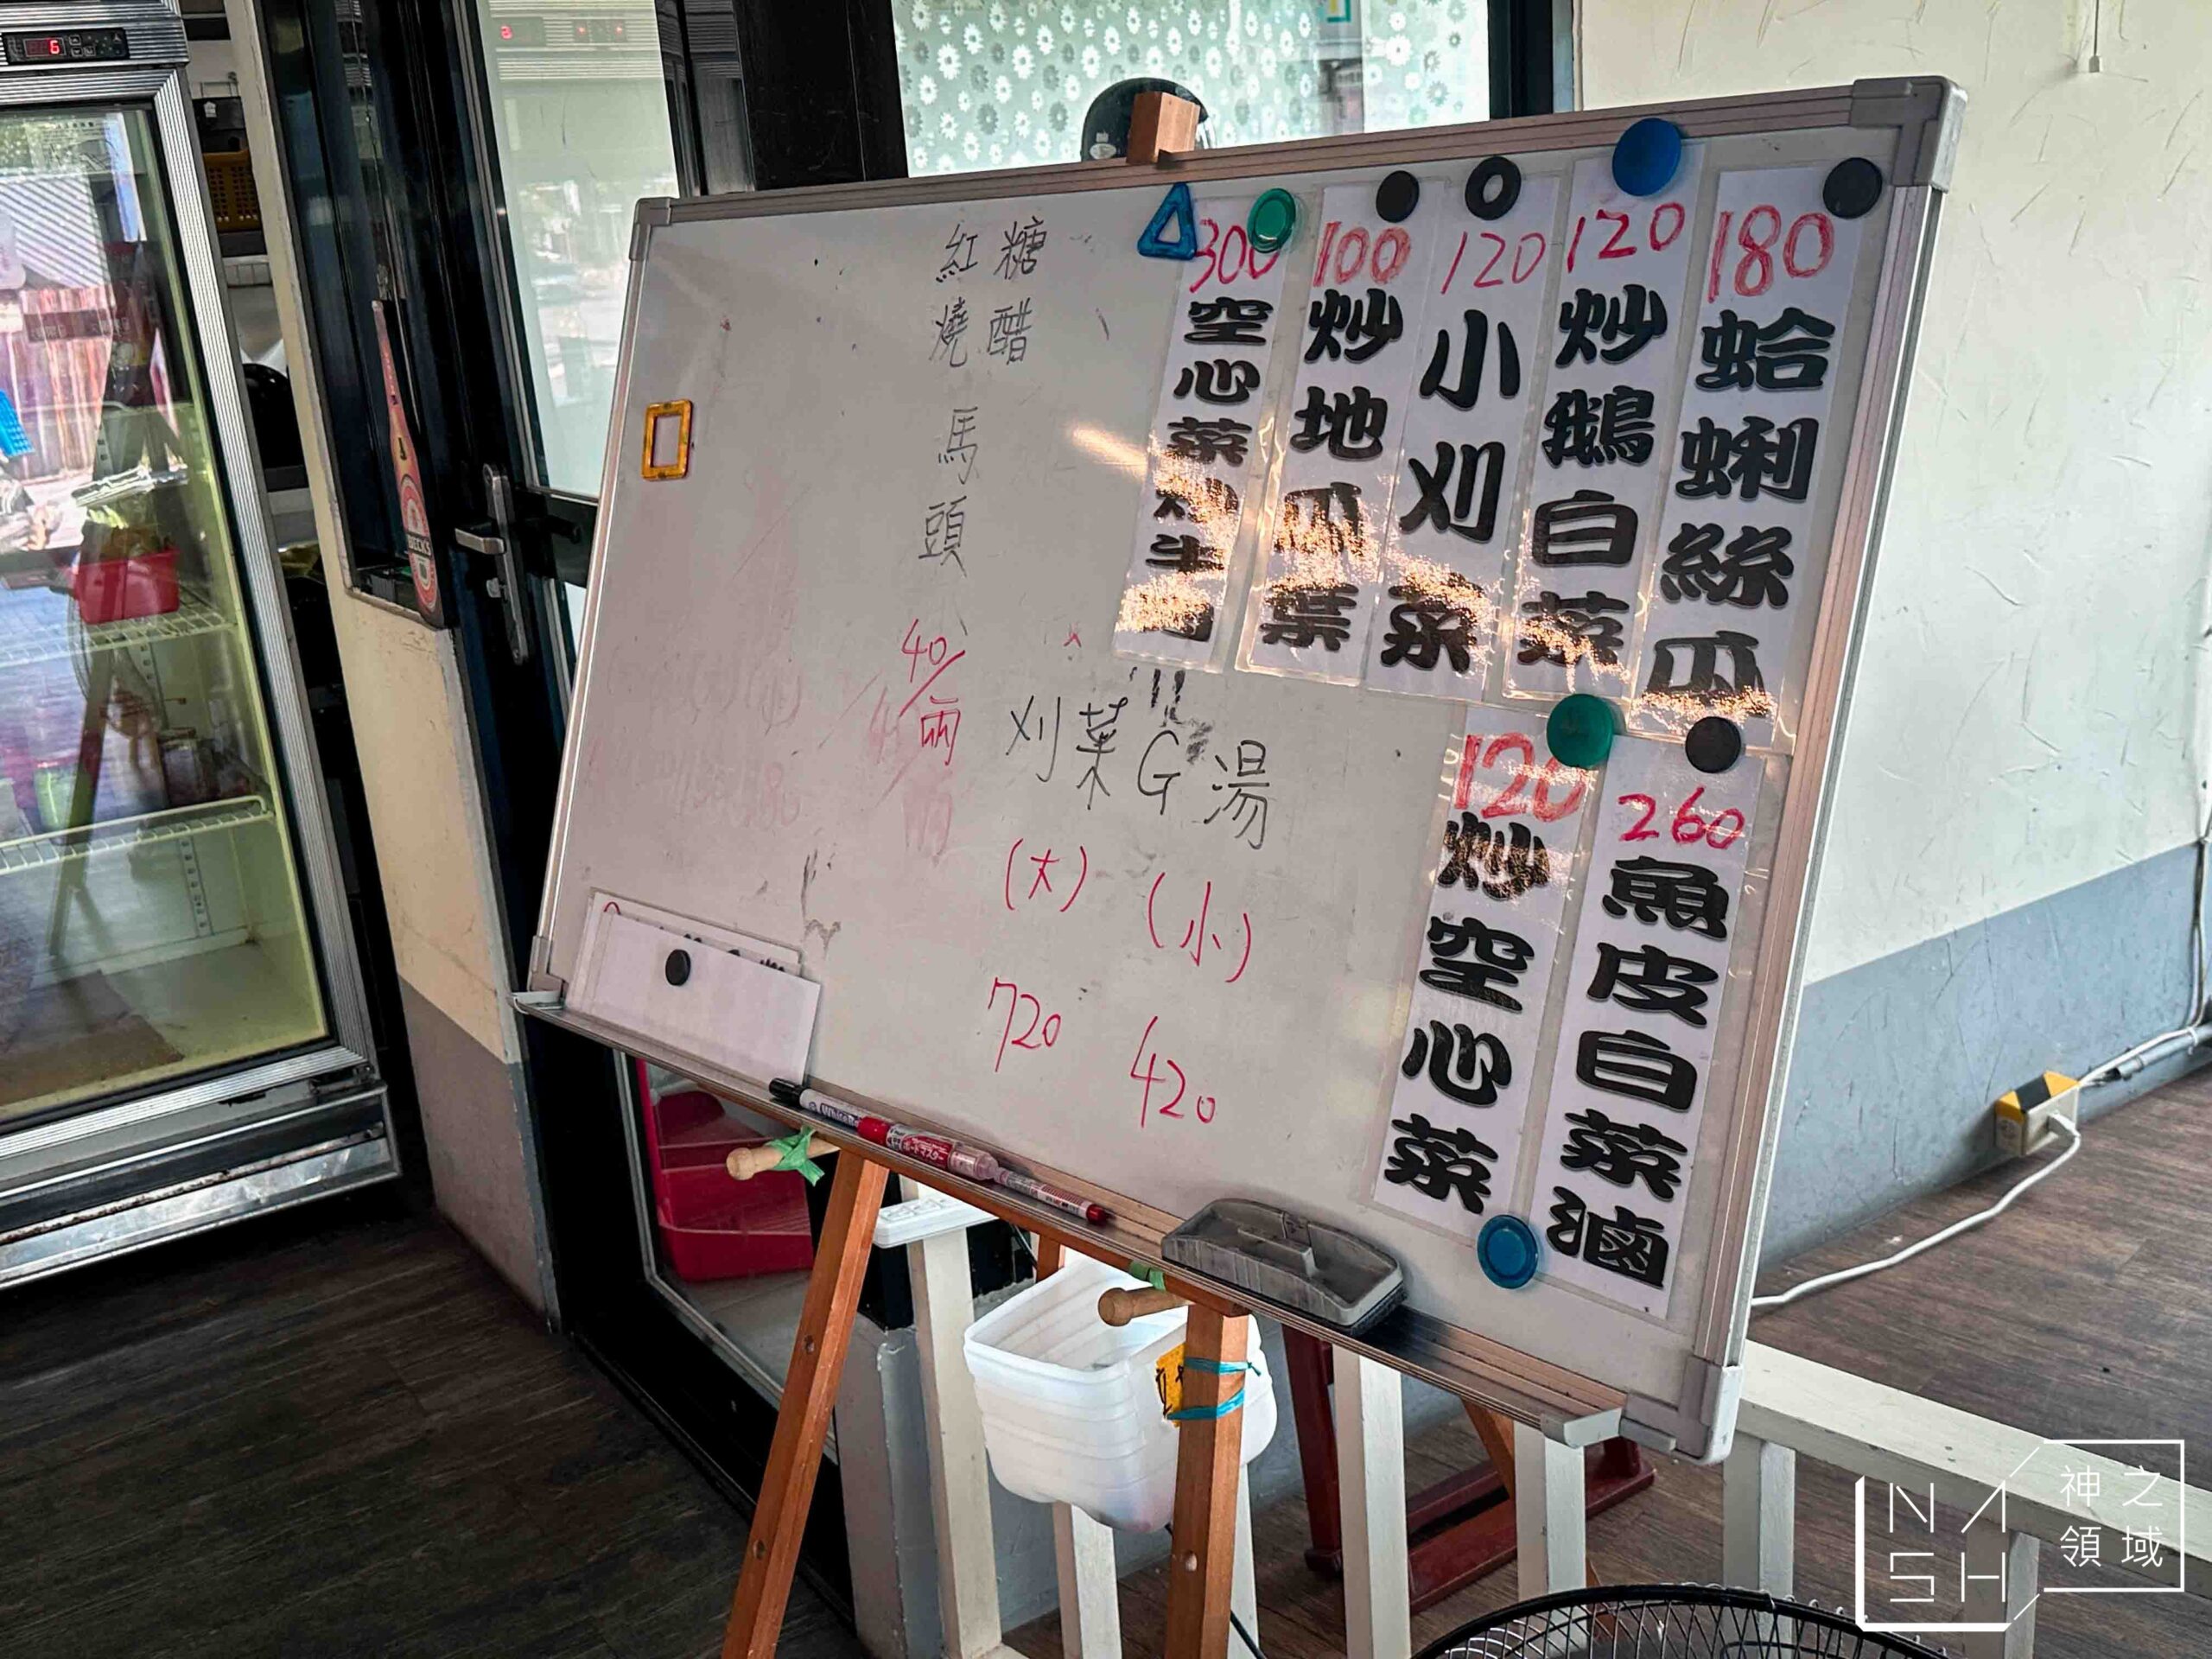 180
蛤蜊絲瓜
120
炒鵝白菜
120
小刈菜
100
炒地瓜葉
300
空心菜炒牛肉
260
魚皮白菜滷
120
炒空心菜
糖醋
紅燒
馬頭
40/兩
刈菜G湯
(大) (小)
720 420
BECK'S
ボードマスター
NASH
神之
領域